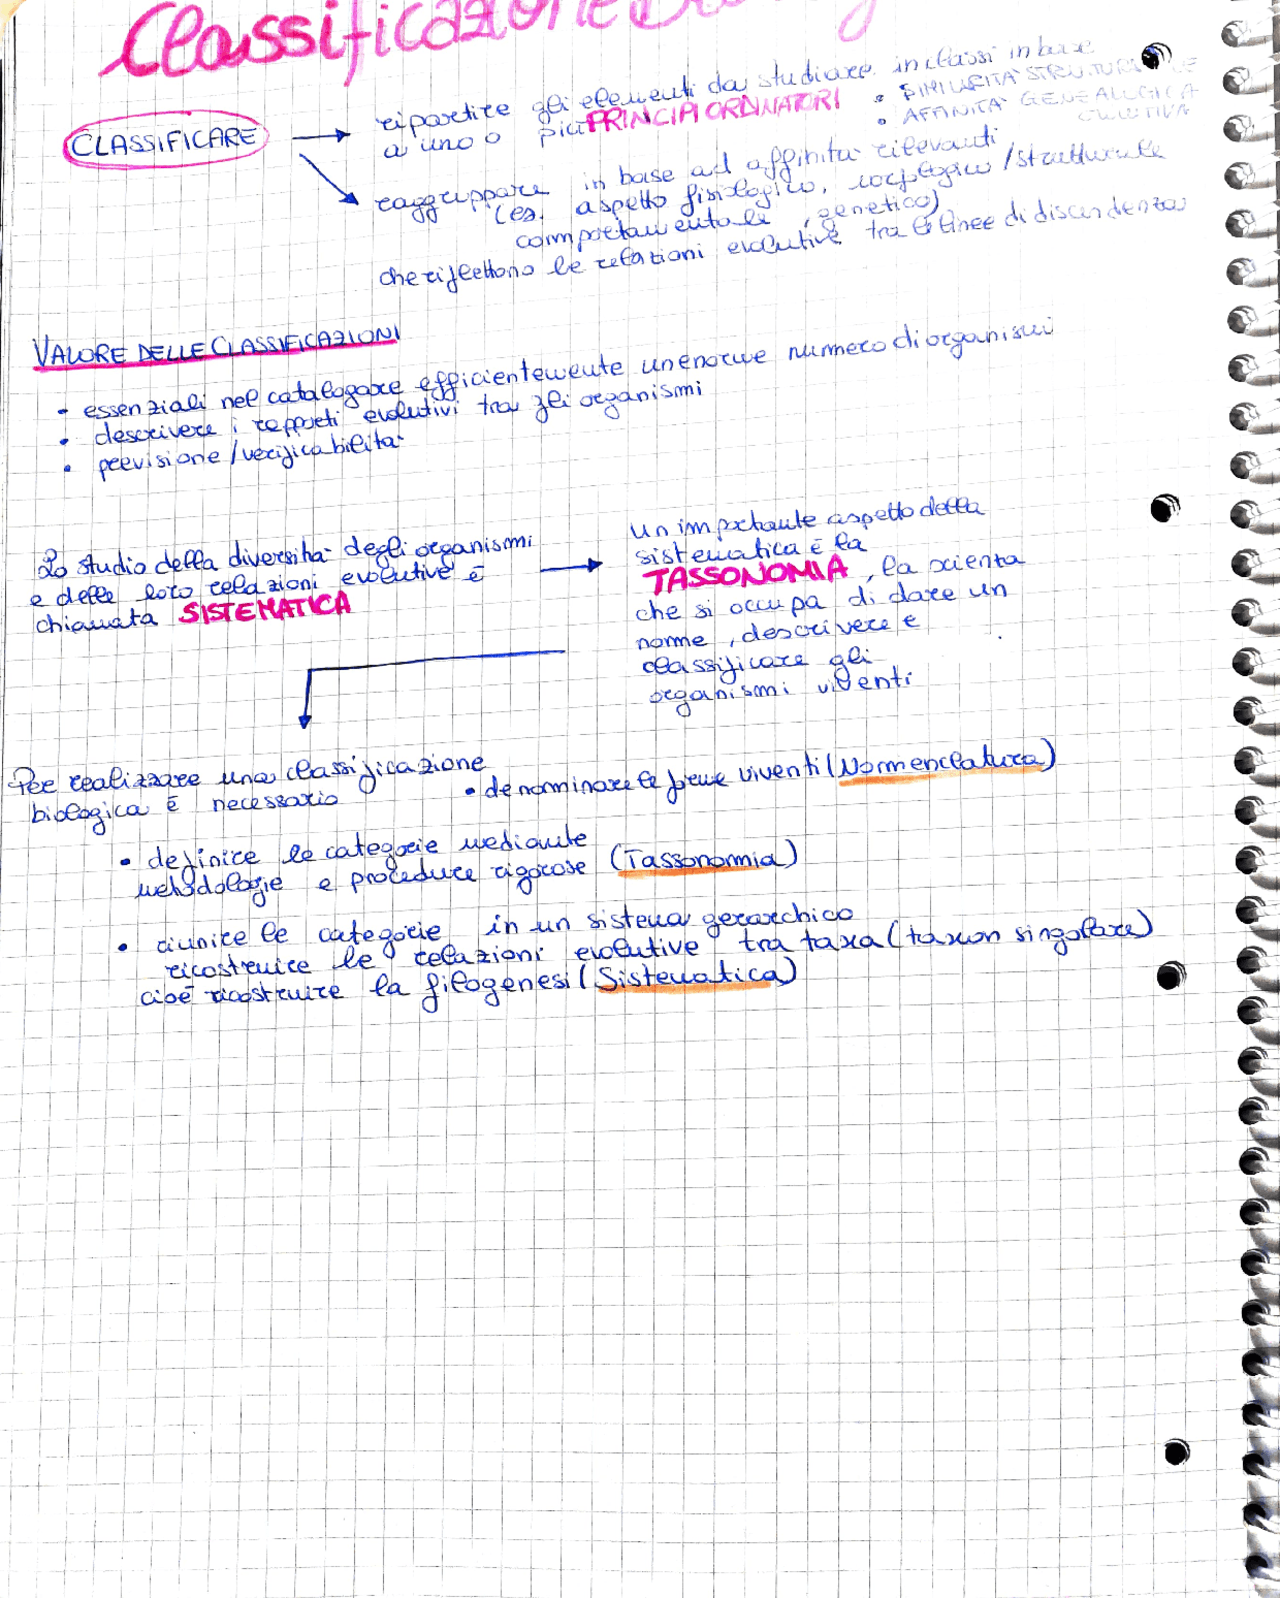 Classificazione
CLASSIFICARE
ripartire gli elementi da studiare in classi in base
a uno o più PRINCIPI ORDINATORI
• SIMILARITÀ STRUTTURALE
• AFFINITÀ GENEALOGICA
EVOLUTIVA
raggruppare in base ad affinità rilevanti
(es. aspetto fisiologico, morfologico / strutturale
comportamentale, genetico)
che riflettono le relazioni evolutive tra le linee di discendenza
VALORE DELLE CLASSIFICAZIONI
• essenziali nel catalogare efficientemente un enorme numero di organismi
• descrivere i rapporti evolutivi tra gli organismi
• previsione / verificabilità
Lo studio della diversità degli organismi
e delle loro relazioni evolutive è
chiamata SISTEMATICA
un importante aspetto della
sistematica è la
TASSONOMIA, la scienza
che si occupa di dare un
nome, descrivere e
classificare gli
organismi viventi
Per realizzare una classificazione
biologica è necessario
• denominare le forme viventi (Normenclatura)
• definire le categorie mediante
metodologie e procedure rigorose (Tassonomia)
• riunire le categorie in un sistema gerarchico
ricostruire le relazioni evolutive tra taxa (taxon singolare)
cioè ricostruire la filogenesi (Sistematica)